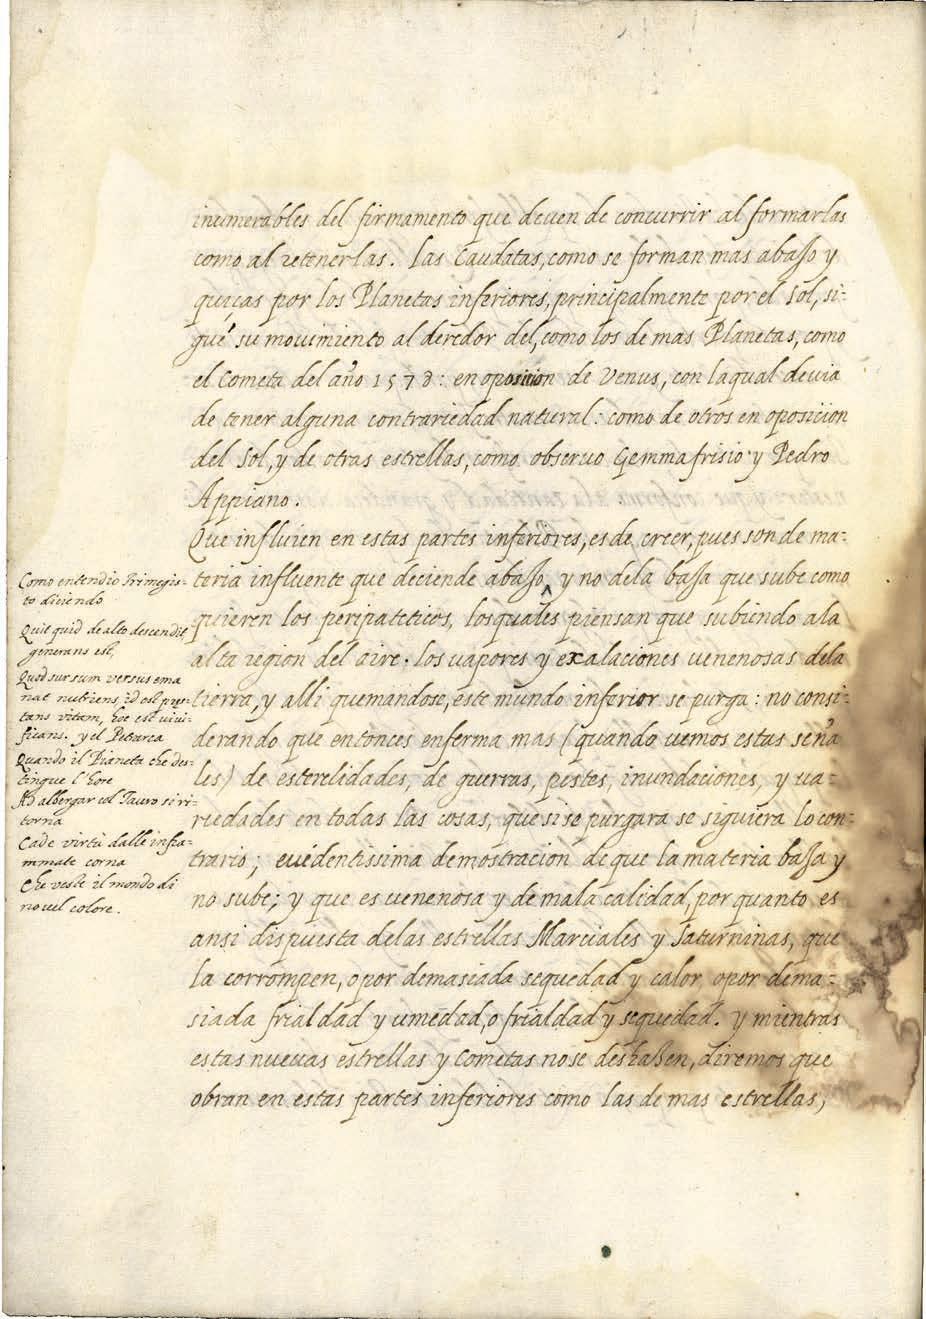 inumerables del firmamento que deven de concurrir al formarlas
como al retenerlas. Las Caudatas, como se forman mas abaſſo y
quiças por los Planetas inferiores, principalmente por el Sol, si-
gué su movimiento al deredor del, como los de mas Planetas, como
el Cometa del año 1578: en oposicion de Venus, con laqual devia
de tener alguna contrariedad natural: como de otros en oposicion
del Sol, y de otras estrellas, como observo Gemmafrisio y Pedro
Appiano.
Que influien en estas partes inferiores, es de creer, pues son de ma-
teria influente que deciende abaſſo, y no dela baſſa que sube como
quieren los peripateticos, los quales piensan que subiendo ala
alta region del aire. los vapores y exalaciones venenosas dela
tierra, y alli quemandose, este mundo inferior se purga: no consi-
derando que entonces enferma mas (quando vemos estas seña
les) de esterelidades, de guerras, pestes, inundaciones, y va-
riedades en todas las cosas, que si se purgara se siguiera lo con-
trario; evidentissima demostracion de que la materia baſſa y
no sube; y que es venenosa y de mala calidad, por quanto es
ansi dispuesta delas estrellas Marciales y Saturninas, que
la corrompen, o por demasiada sequedad y calor, o por dema-
siada frialdad y umedad, o frialdad y sequedad. y mientras
estas nuevas estrellas y Cometas no se deshaßen, diremos que
obran en estas partes inferiores como las de mas estrellas,
Como entendio Trimegis-
to diciendo
Quit quid de alto descendit
generans est,
Quod sursum versus ema
nat nutriens, id est pres-
tans vitam, hoc est vivi-
ficans. y el Petrarca
Quando il Pianeta che des-
tingue l'hore
Ad albergar col Tauro si ri-
torna
Cade virtù dalle infia-
mmate corna
Che veste il mondo di
novel colore.